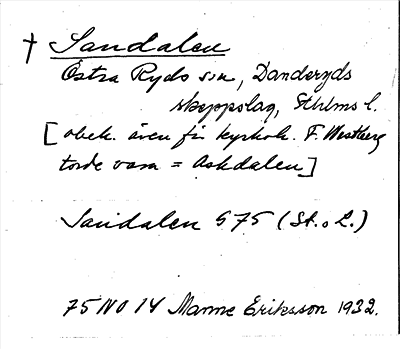 † Sandalen
Östra Ryds sn, Danderyds
skeppslag, Sthlms l.
[obek. även för kyrkoh. F. Westberg
torde vara = Askdalen]
Sandalen G75 (St. o L.)
75 NO 14 Manne Eriksson 1932.